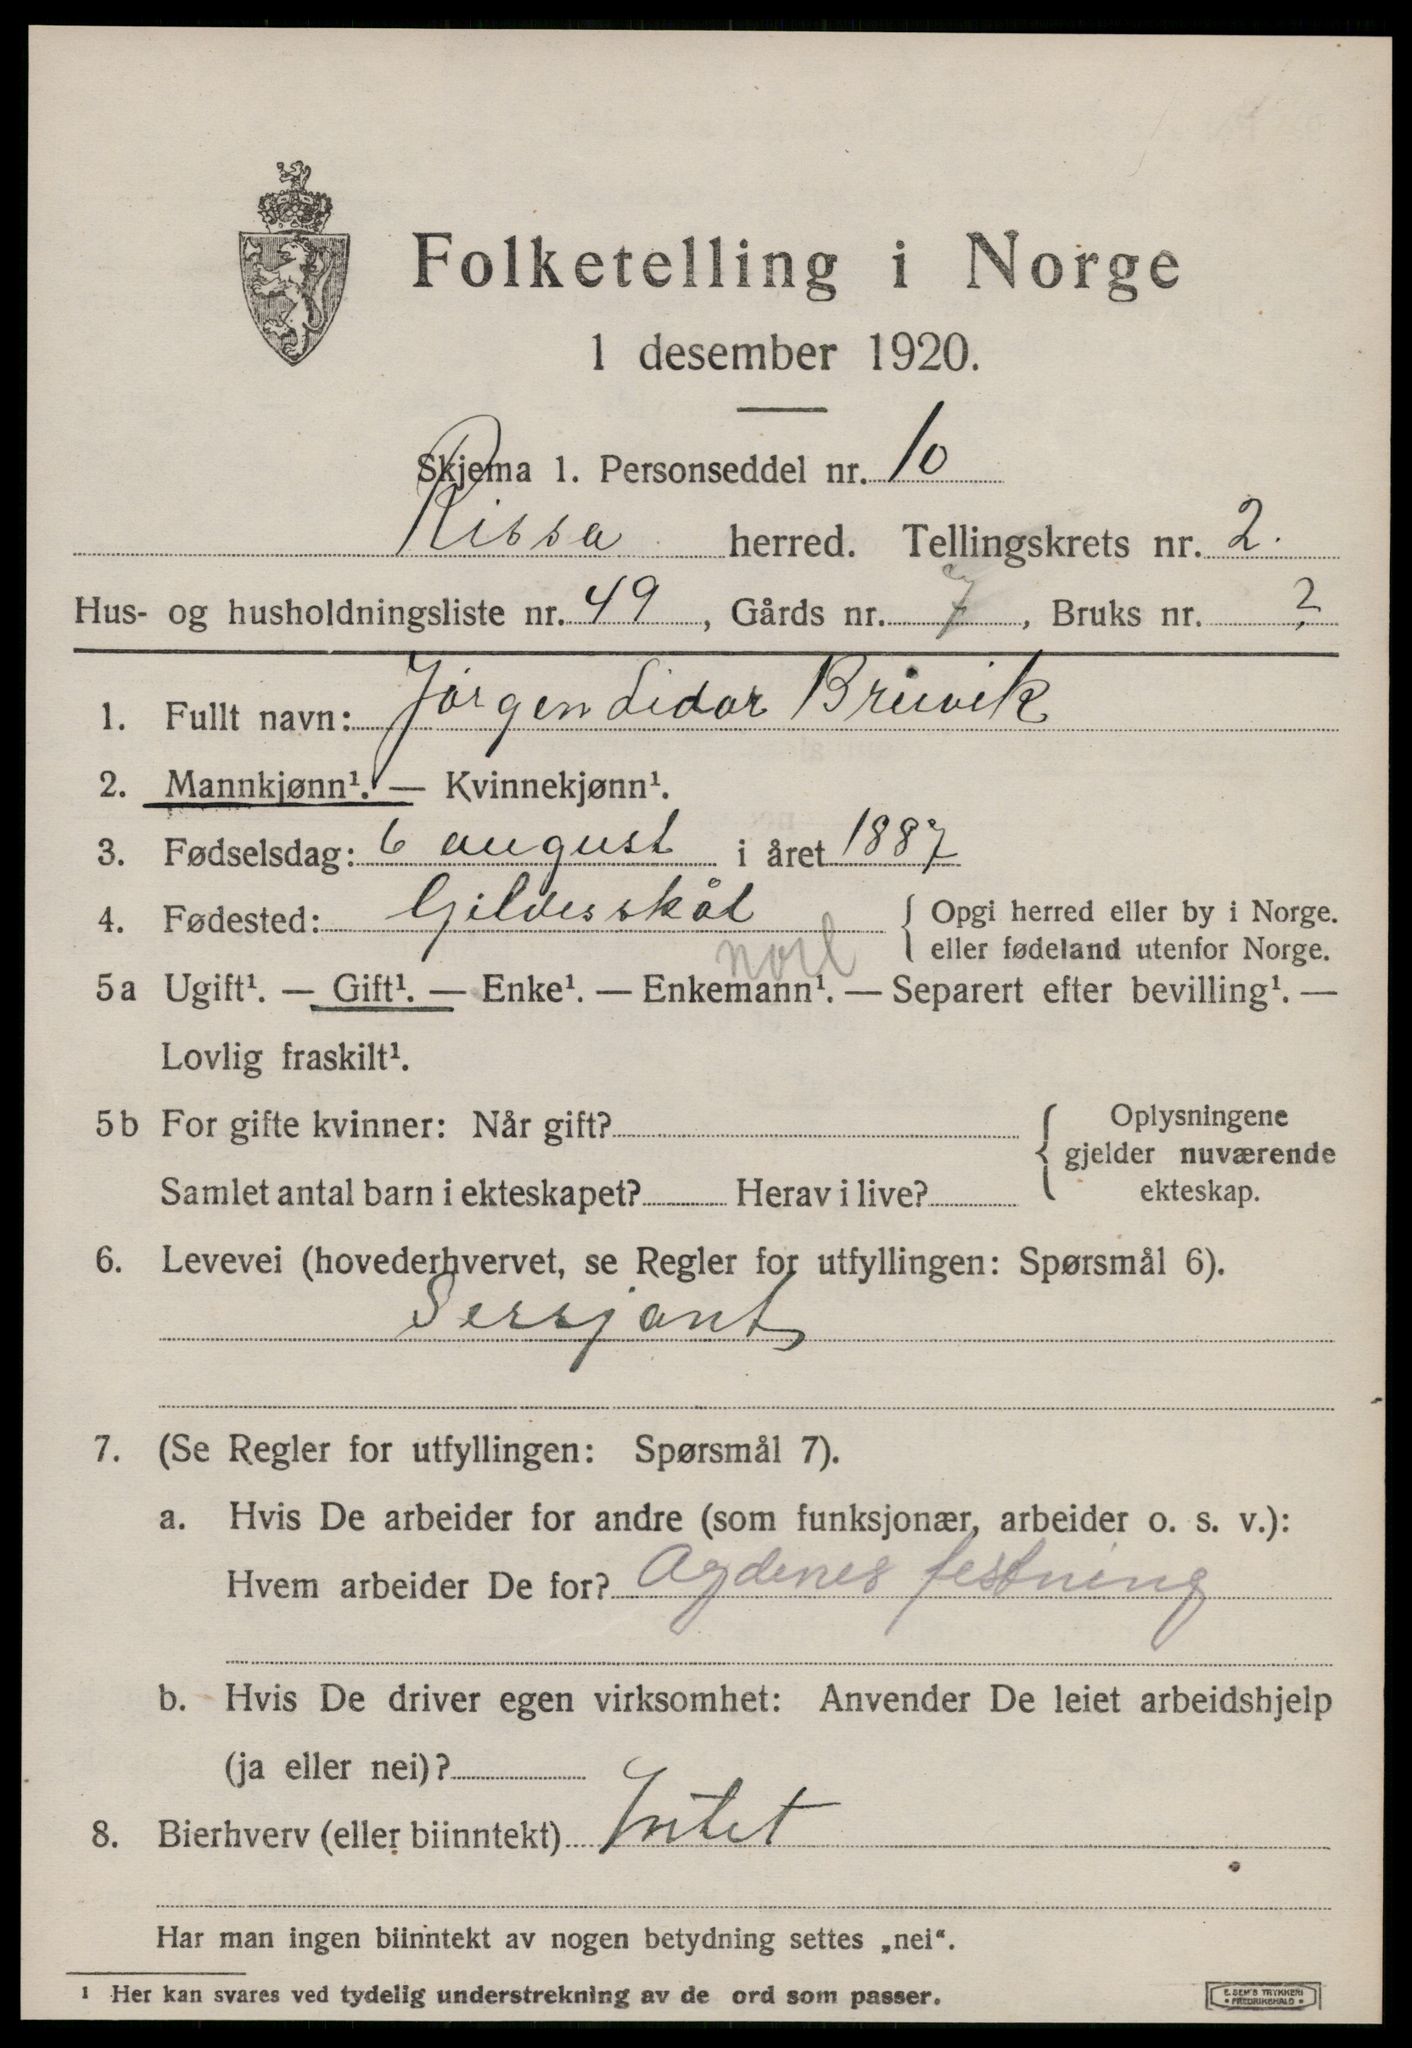 Folketelling i Norge
1 desember 1920.
Skjema 1. Personseddel nr. 10
Rissa herred. Tellingskrets nr. 2.
Hus- og husholdningsliste nr. 49, Gårds nr. 7, Bruks nr. ?
1. Fullt navn: Jörgen Sidor Bruvik
2. Mannkjønn¹. — Kvinnekjønn¹.
3. Fødselsdag: 6 august i året 1887
4. Fødested: Gildesskål { Opgi herred eller by i Norge.
eller fødeland utenfor Norge.
nord
5a Ugift¹. — Gift¹. — Enke¹. — Enkemann¹. — Separert efter bevilling¹. —
Lovlig fraskilt¹.
5b For gifte kvinner: Når gift? { Oplysningene
gjelder nuværende
Samlet antal barn i ekteskapet? Herav i live? ekteskap.
6. Levevei (hovederhvervet, se Regler for utfyllingen: Spørsmål 6).
Sersjant
7. (Se Regler for utfyllingen: Spørsmål 7).
a. Hvis De arbeider for andre (som funksjonær, arbeider o. s. v.):
Hvem arbeider De for? Agdenes festning
b. Hvis De driver egen virksomhet: Anvender De leiet arbeidshjelp
(ja eller nei)?
8. Bierhverv (eller biinntekt) Intet
Har man ingen biinntekt av nogen betydning settes „nei“.
¹ Her kan svares ved tydelig understrekning av de ord som passer.
E. SEM'S TRYKKERI
• FREDRIKSHALD •